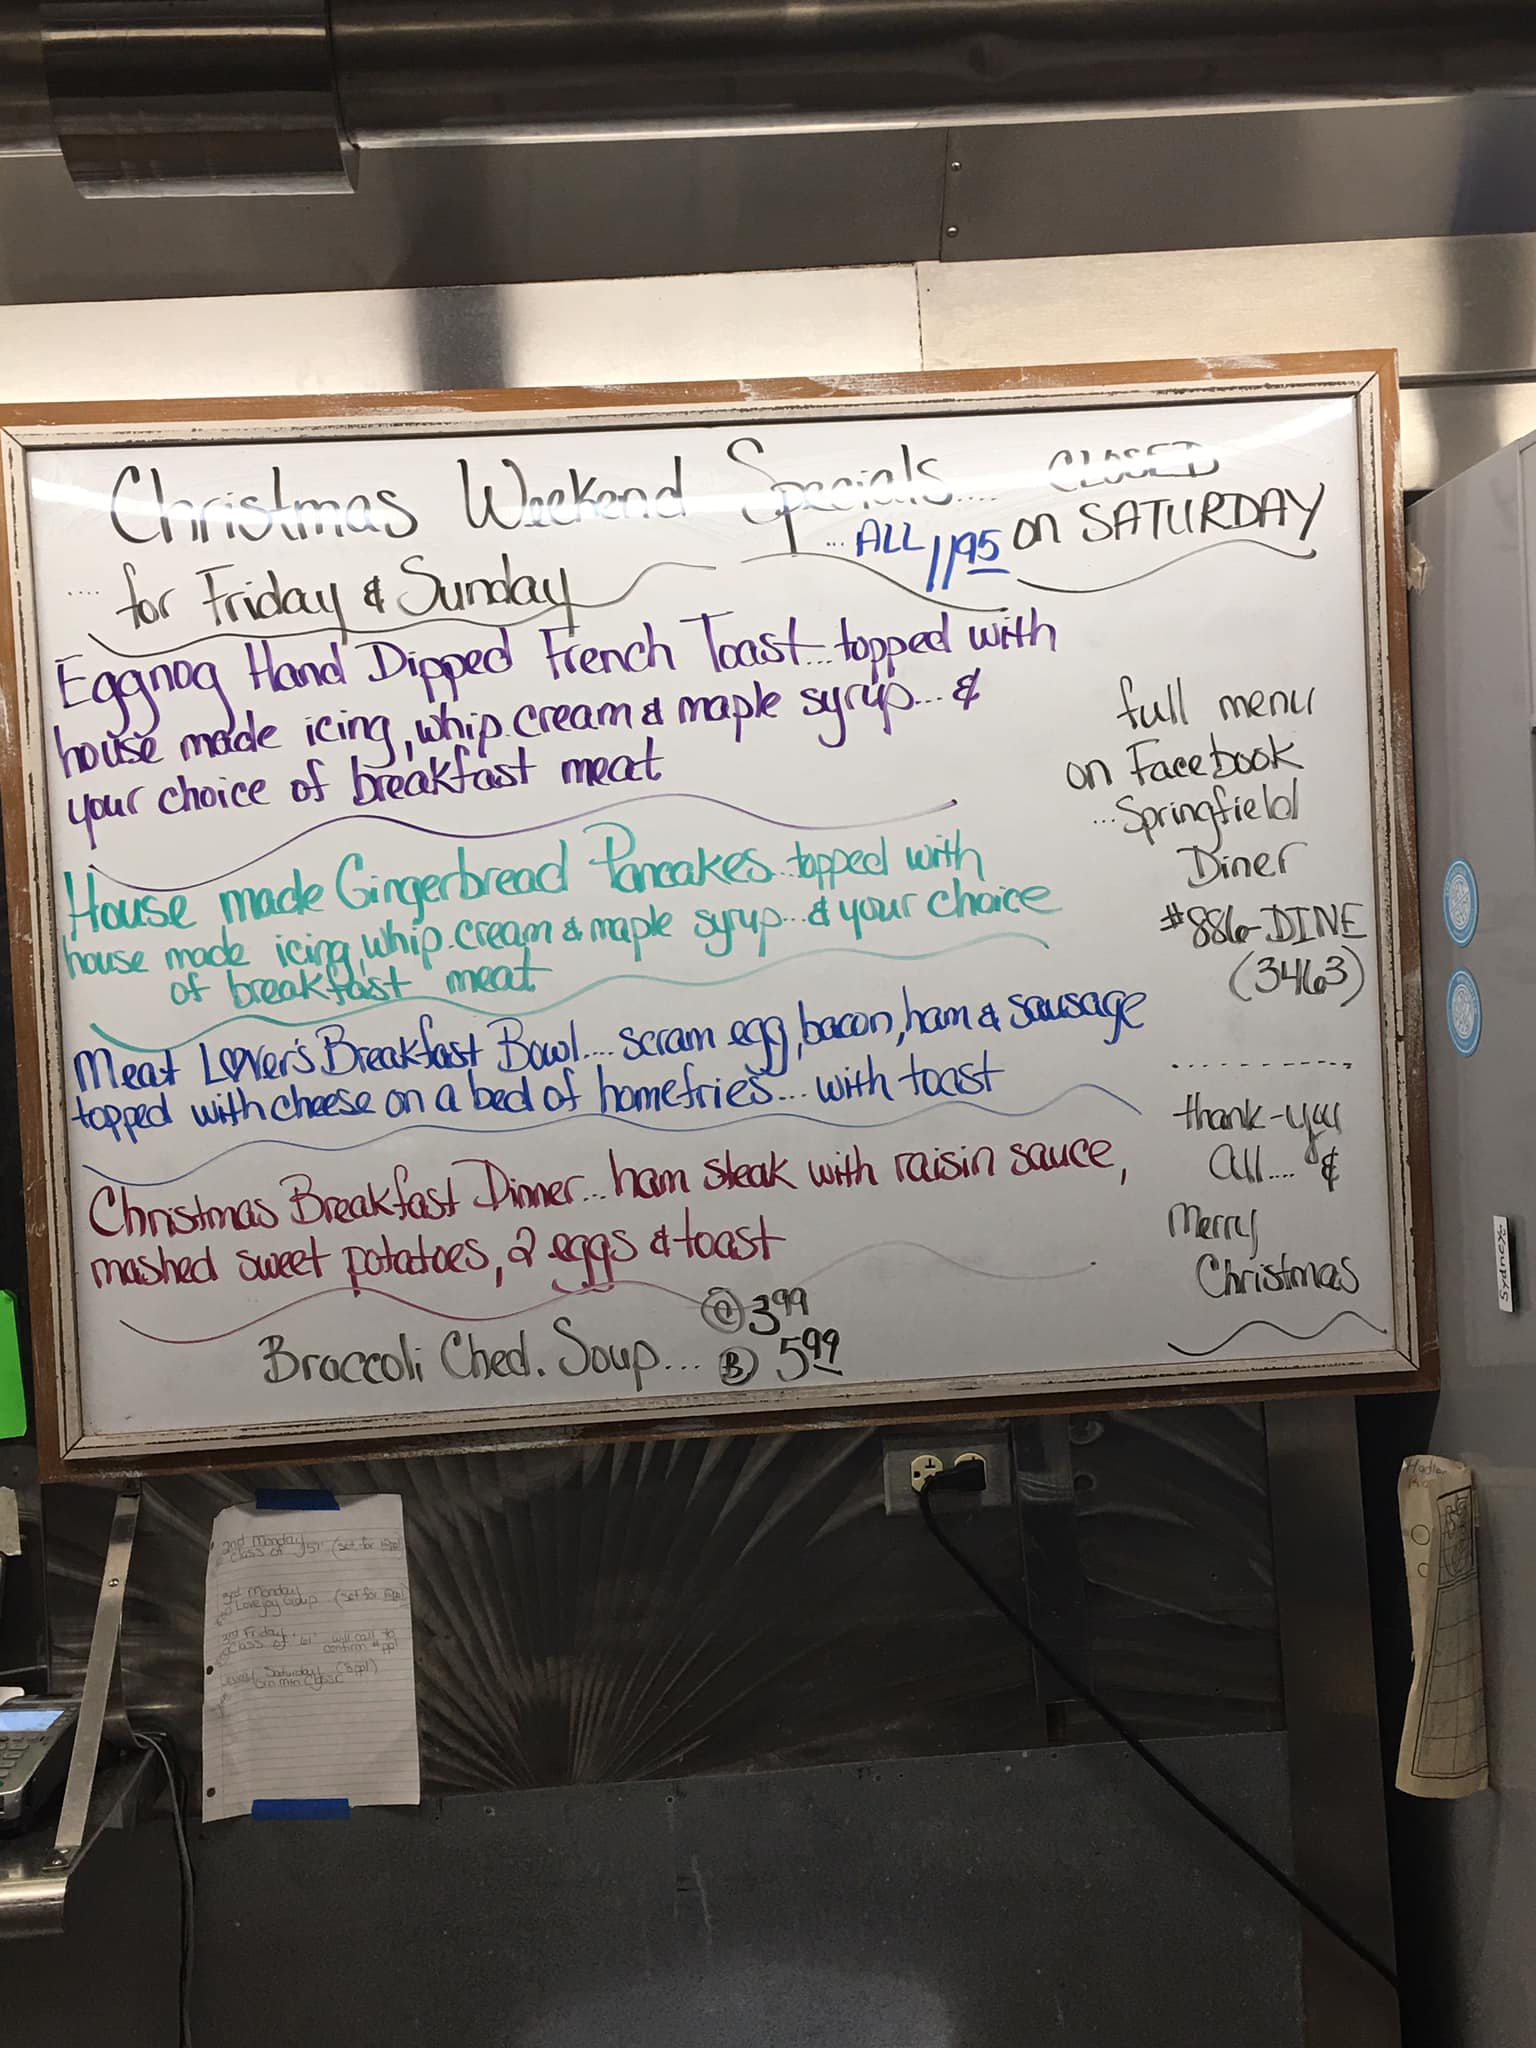 Christmas Weekend Specials....
CLOSED
on SATURDAY
... ALL 11 95
.... for Friday & Sunday
Eggnog Hand Dipped French Toast...topped with
house made icing, whip cream & maple syrup...&
your choice of breakfast meat
House made Gingerbread Pancakes...topped with
house made icing, whip.cream & maple syrup...& your choice
of breakfast meat
Meat L♥ver's Breakfast Bowl.... scram egg, bacon, ham & sausage
topped with cheese on a bed of homefries... with toast
Christmas Breakfast Dinner... ham steak with raisin sauce,
mashed sweet potatoes, 2 eggs & toast
Broccoli Ched. Soup...
C 3 99
B 5 99
full menu
on Facebook
...Springfield
Diner
#886-DINE
(3463)
thank-you
All.... &
Merry
Christmas
Sydney
2nd Monday
class of '57 (set for
3rd Monday
Lovejoy Group (set for
Friday
class of '61' will call to
confirm # ppl
every Saturday (8 ppl)